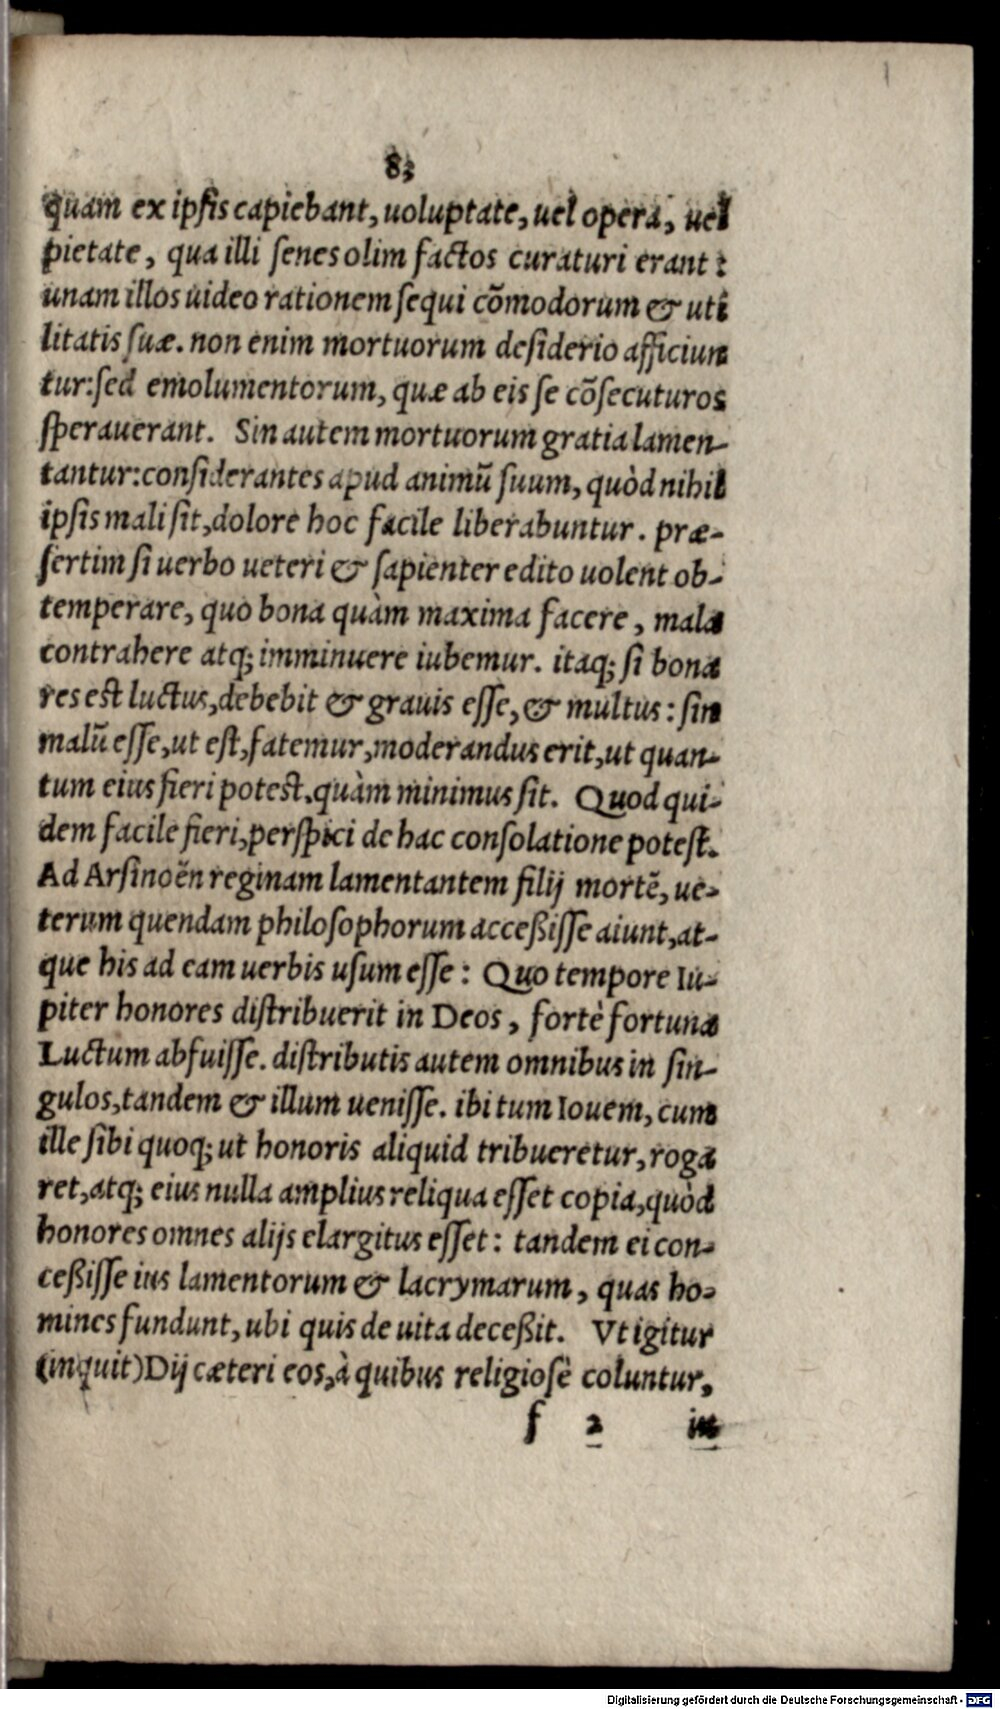 83
quam ex ipsis capiebant, uoluptate, uel opera, uel
pietate, qua illi senes olim factos curaturi erant:
unam illos uideo rationem sequi cõmodorum & uti
litatis suæ. non enim mortuorum desiderio afficiun
tur: sed emolumentorum, quæ ab eis se cõsecuturos
sperauerant. Sin autem mortuorum gratia lamen-
tantur: considerantes apud animũ suum, quòd nihil
ipsis mali sit, dolore hoc facile liberabuntur. præ-
sertim si uerbo ueteri & sapienter edito uolent ob-
temperare, quo bona quàm maxima facere, mala
contrahere atq; imminuere iubemur. itaq; si bona
res est luctus, debebit & grauis esse, & multus: sin
malũ esse, ut est, fatemur, moderandus erit, ut quan-
tum eius fieri potest, quàm minimus sit. Quod qui-
dem facile fieri, perspici de hac consolatione potest.
Ad Arsinoẽn reginam lamentantem filij mortẽ, ue-
terum quendam philosophorum acceßisse aiunt, at-
que his ad eam uerbis usum esse: Quo tempore Iu-
piter honores distribuerit in Deos, fortè fortuna
Luctum abfuisse. distributis autem omnibus in sin-
gulos, tandem & illum uenisse. ibi tum Iouem, cum
ille sibi quoq; ut honoris aliquid tribueretur, roga
ret, atq; eius nulla amplius reliqua esset copia, quòd
honores omnes alijs elargitus esset: tandem ei con-
ceßisse ius lamentorum & lacrymarum, quas ho-
mines fundunt, ubi quis de uita deceßit. Vt igitur
(inquit) Dij cæteri eos, à quibus religiosè coluntur,
f 2 in
Digitalisierung gefördert durch die Deutsche Forschungsgemeinschaft - DFG